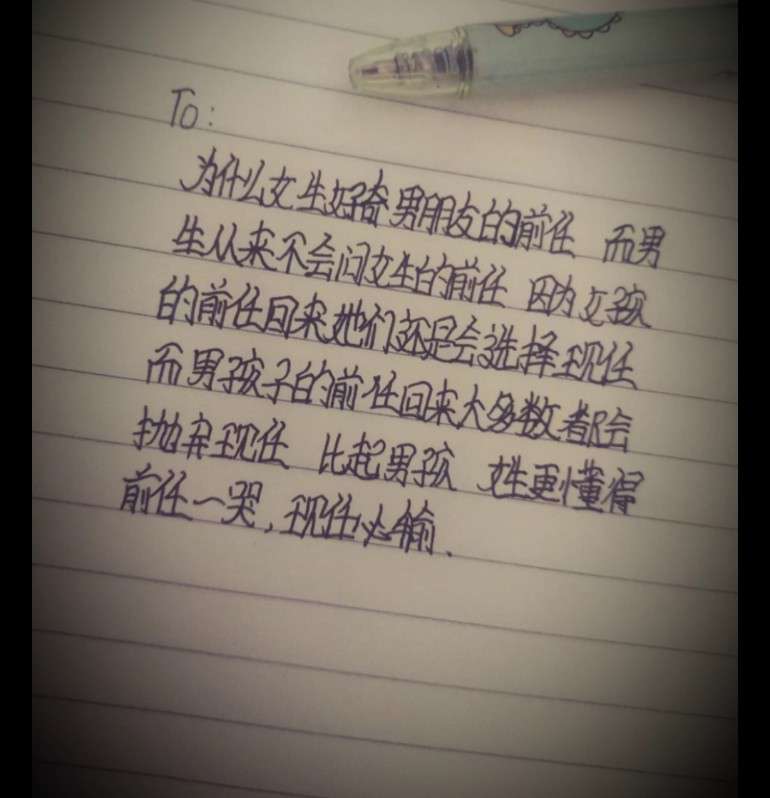 To:
为什么女生好奇男朋友的前任 而男
生从来不会问女生的前任 因为女孩
的前任回来她们还是会选择现任
而男孩子的前任回来大多数都会
抛弃现任 比起男孩 女生更懂得
前任一哭,现任必输.